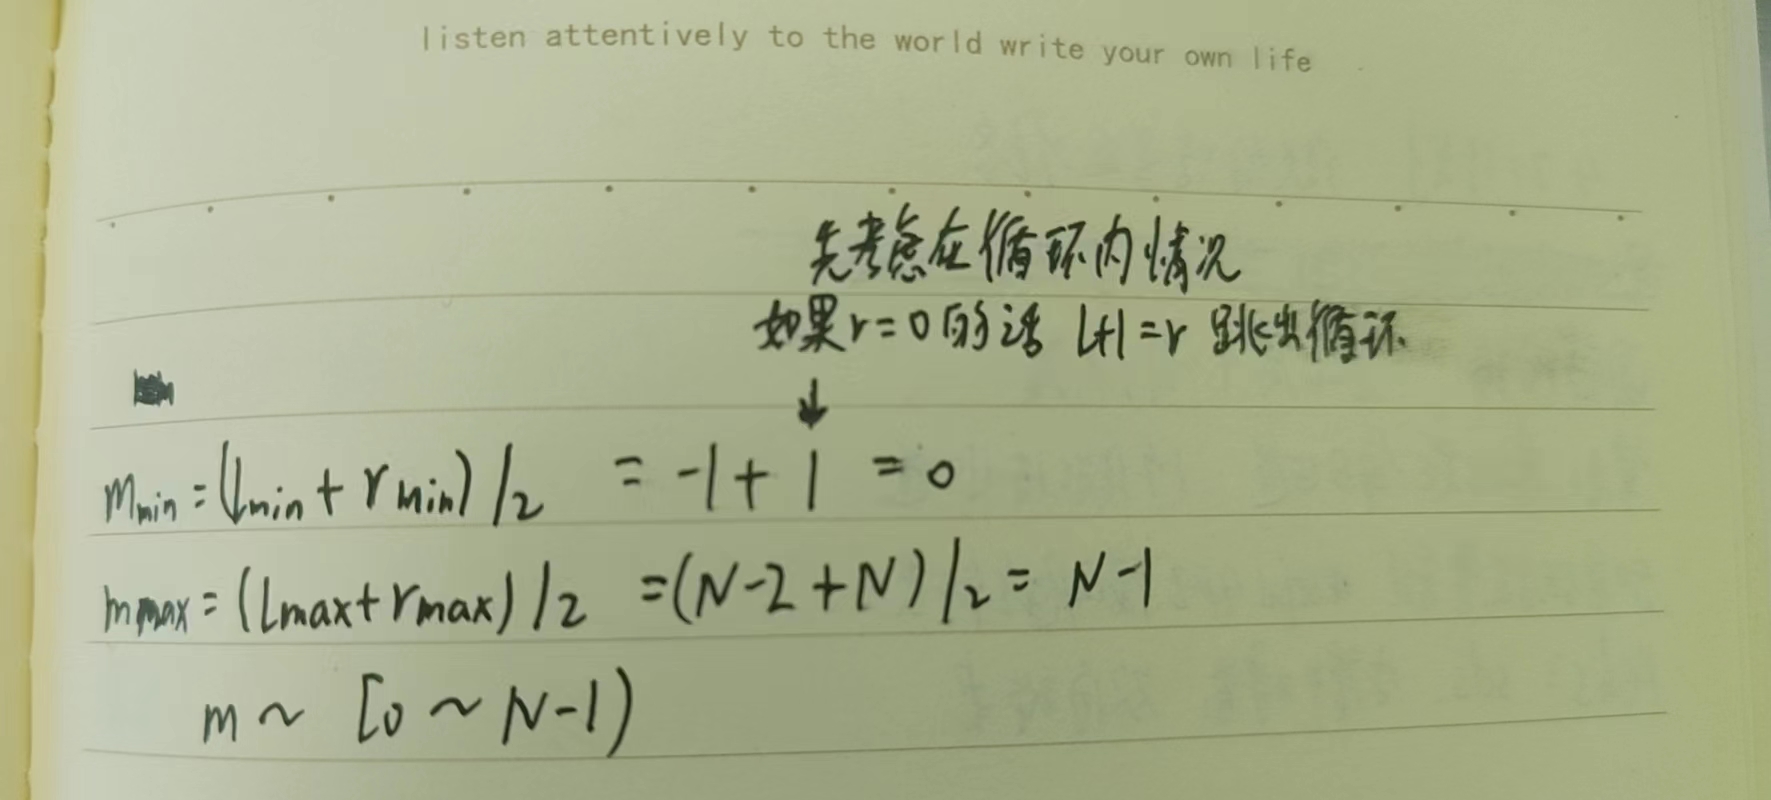 listen attentively to the world write your own life
先考虑在循环内情况
如果r=0的话 l+1=r 跳出循环
↓
m_min = (l_min + r_min)/2 = -1+1 = 0
m_max = (l_max + r_max)/2 = (N-2+N)/2 = N-1
m ~ [0 ~ N-1)